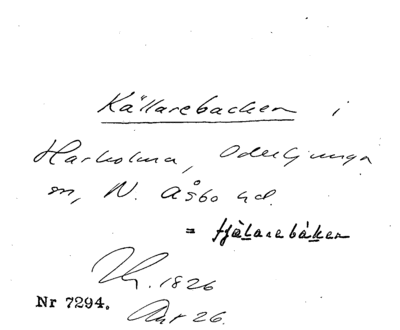 Källarebacken i
Harholma, Oderljunga
sn, N. Åsbo hd.
= tjälarebáken
1826
Nr 7294. Akt 26.